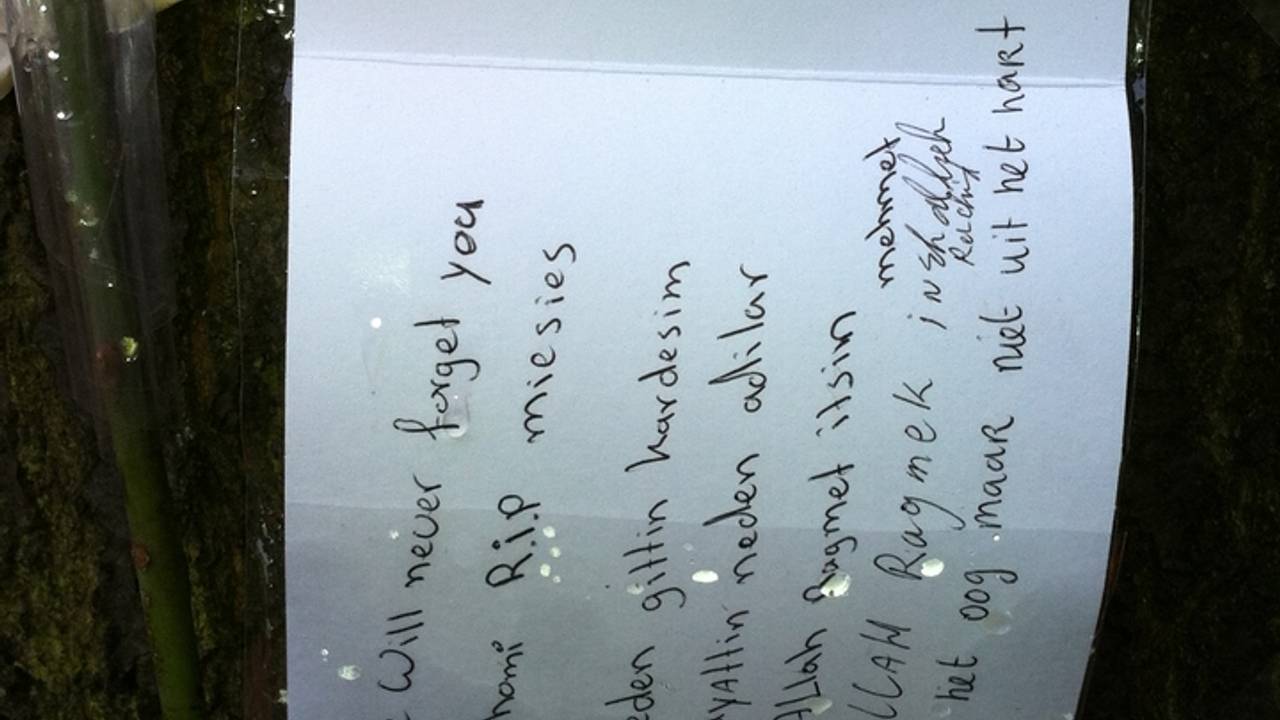 Will never forget you
R.i.p miesies
gittin kardesim
neden adilar
Allah Ragmet itsin
mehmet
Ragmek inshallah
Rachid
het oog maar niet uit het hart